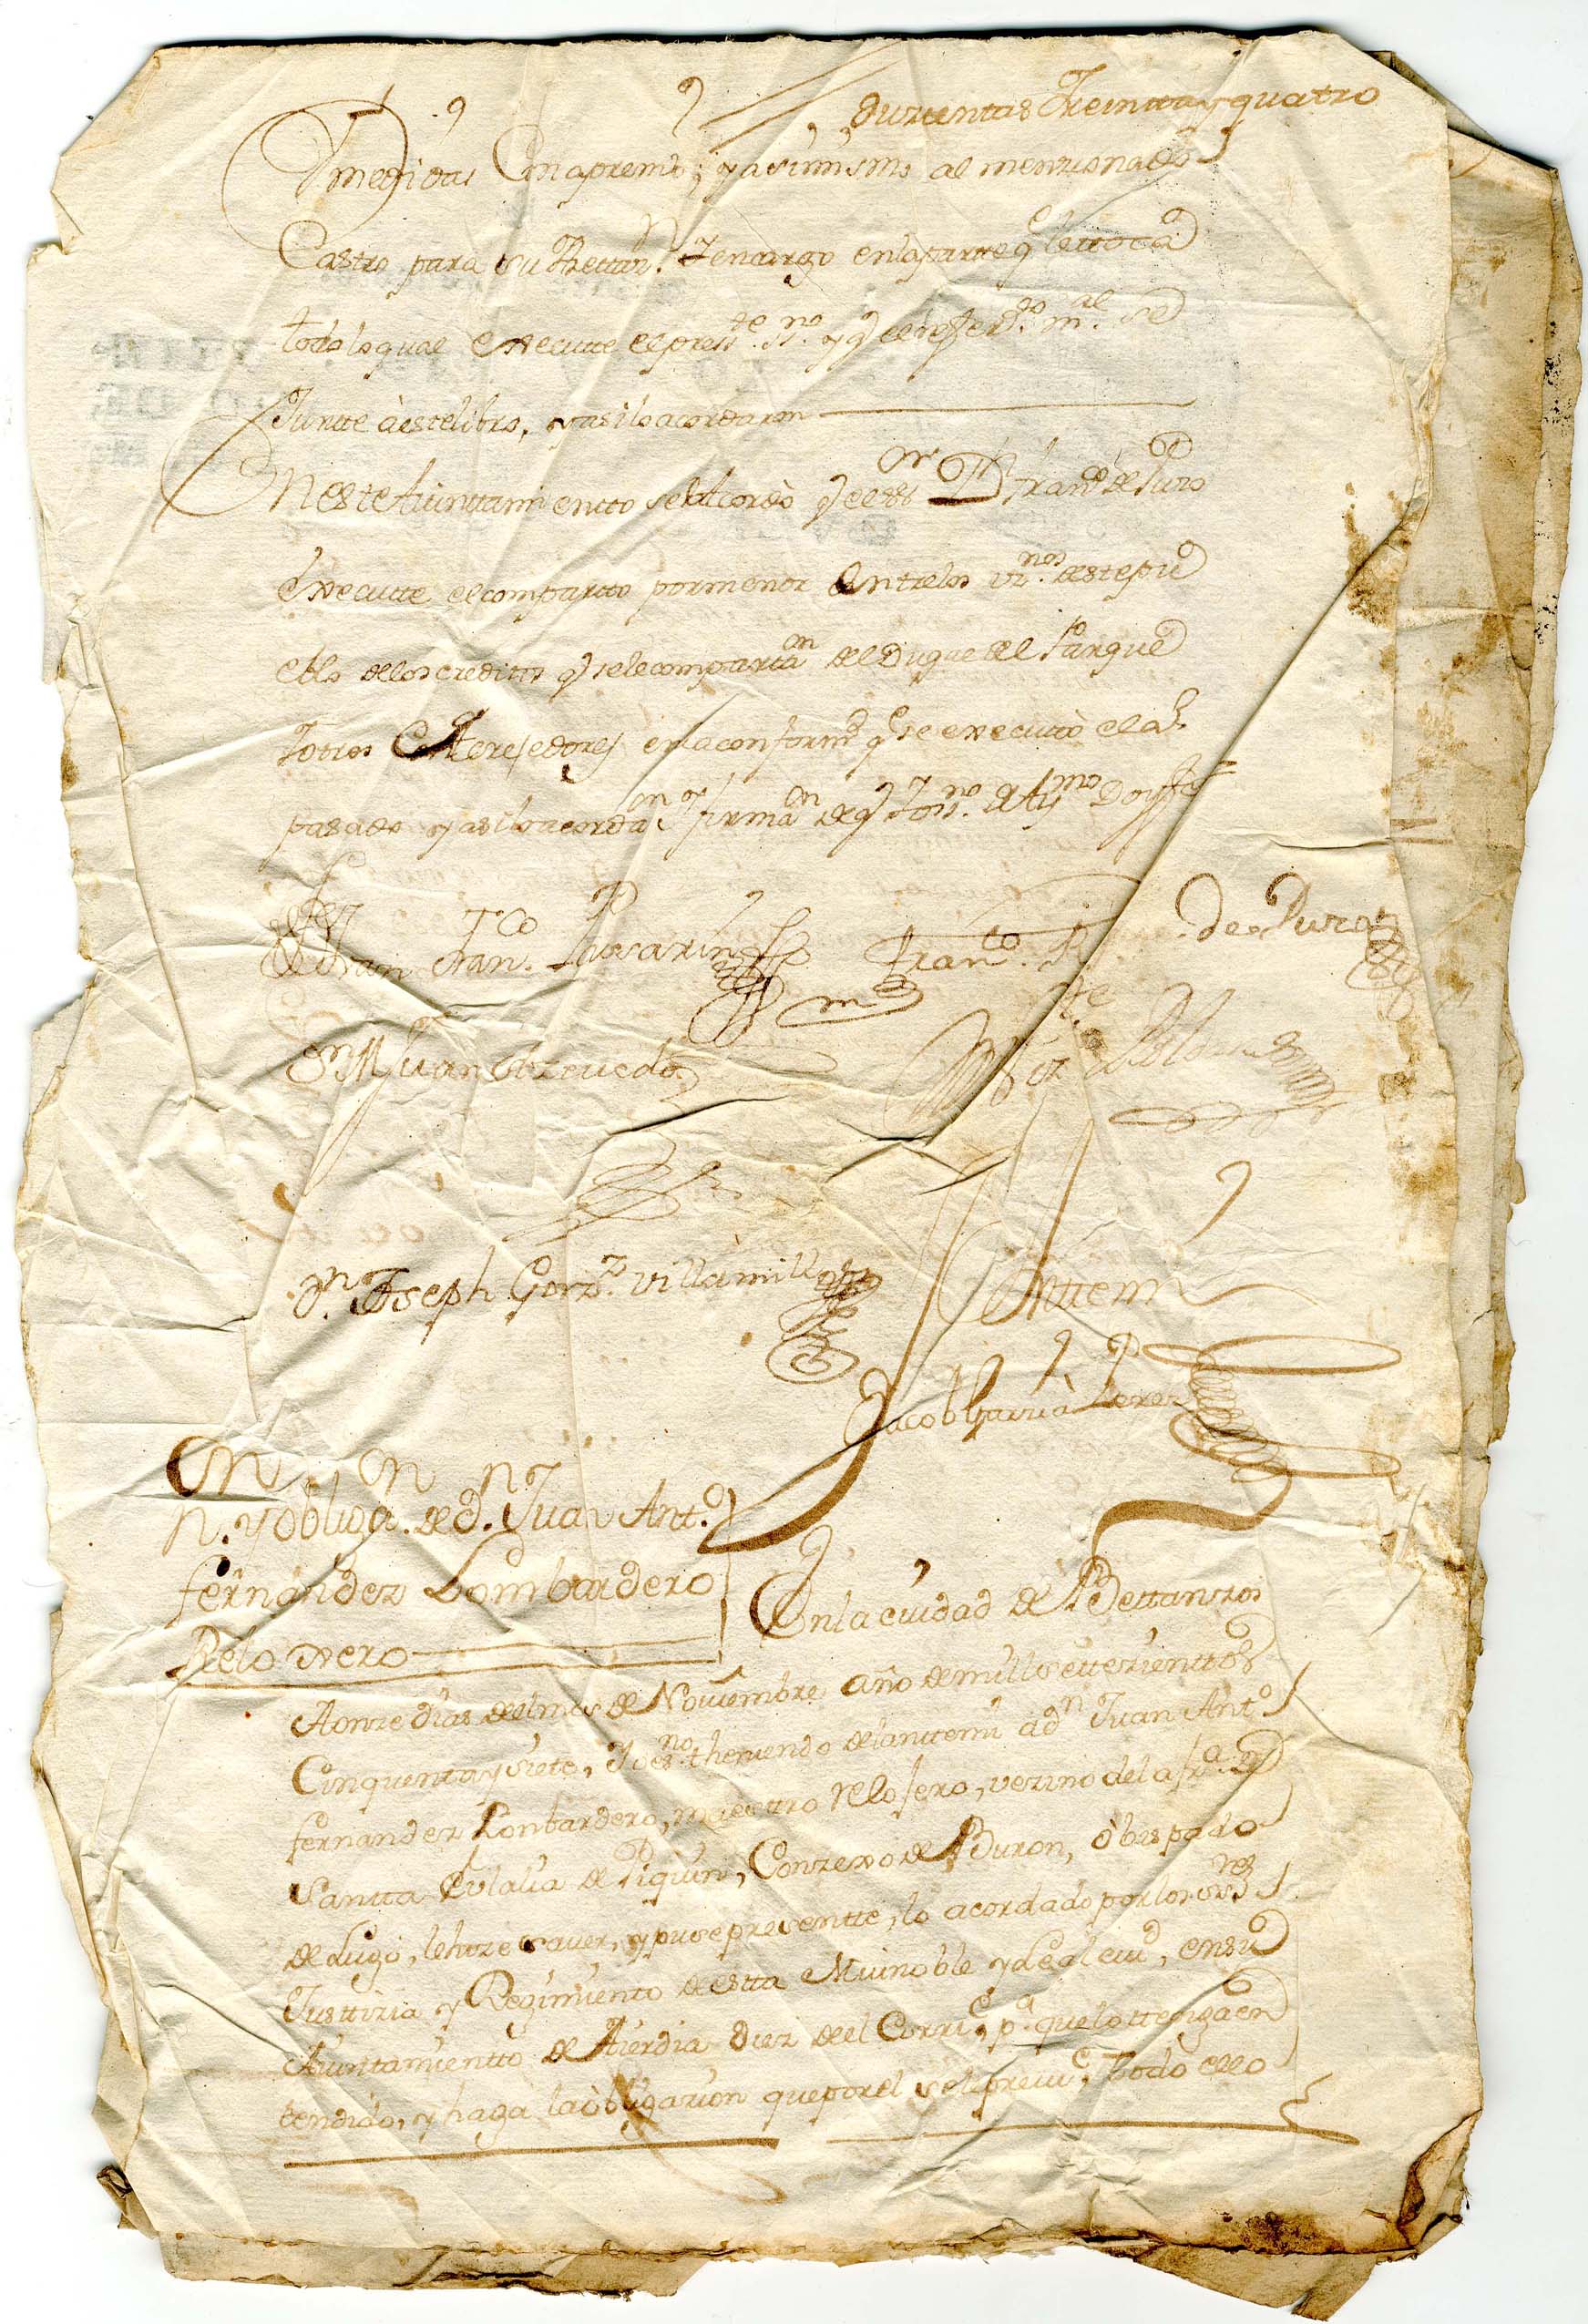 Duzientas Treintta y quatro
medidas Con apremio; y asimismo al menzionado
Castro para su Rettaz.n Y encargo en la partte q le ttoca
todo lo qual execute el press.te ss.no y q el refer.do m.al se
Juntte à este libro, y asi lo acordaron
En este Aiunttamientto se Acordò q el ss.or Dn Fran.co de Puro
executte el compartto por menor Entre los vz.nos de este pu
eblo de los creditos q se le comparttan del Duque del Parque
Y otros Acresedores en la conform.d q se executtò el a.o
pasado y asi lo acordaron y firman de q Yo ss.no de Ay.tto Doy fee
Juan Fran.co
Fran.co de Puro
Dn Juan Azevedo
Dn Joseph Gonz.z Villamill
Antte mi
Jacob Garzia Perez
N.n y obligaz.n de d.n Juan Ant.o
fernandez Lombardero
Reloxero
En la ciudad de Bettanzos
A onze dias del mes de Noviembre año de mill settezienttos
Cinquenta y siete, Yo es.no theniendo delantte mi a d.n Juan Ant.o
fernandez Lonbardero, maesttro relojero, vezino de la fr.a de
Santta Eulalia de Piquin, Conzexo de Buron, òbispado
de Lugo, le hize saver, y puse presentte, lo acordado por los ss.res
Justtizia y Regimiento de estta Mui noble y Leal ciu.d, en su
Aiuntamientto de Aier dia diez del Corri.e, p.a que lo ttenga en
tendido, y haga la òbligazion que por el se le previe.e, Todo ello